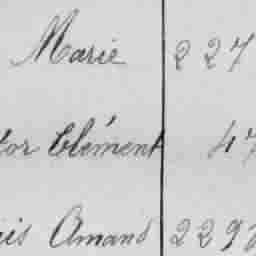 Marie 227
tor Clément 47
is Amand 229